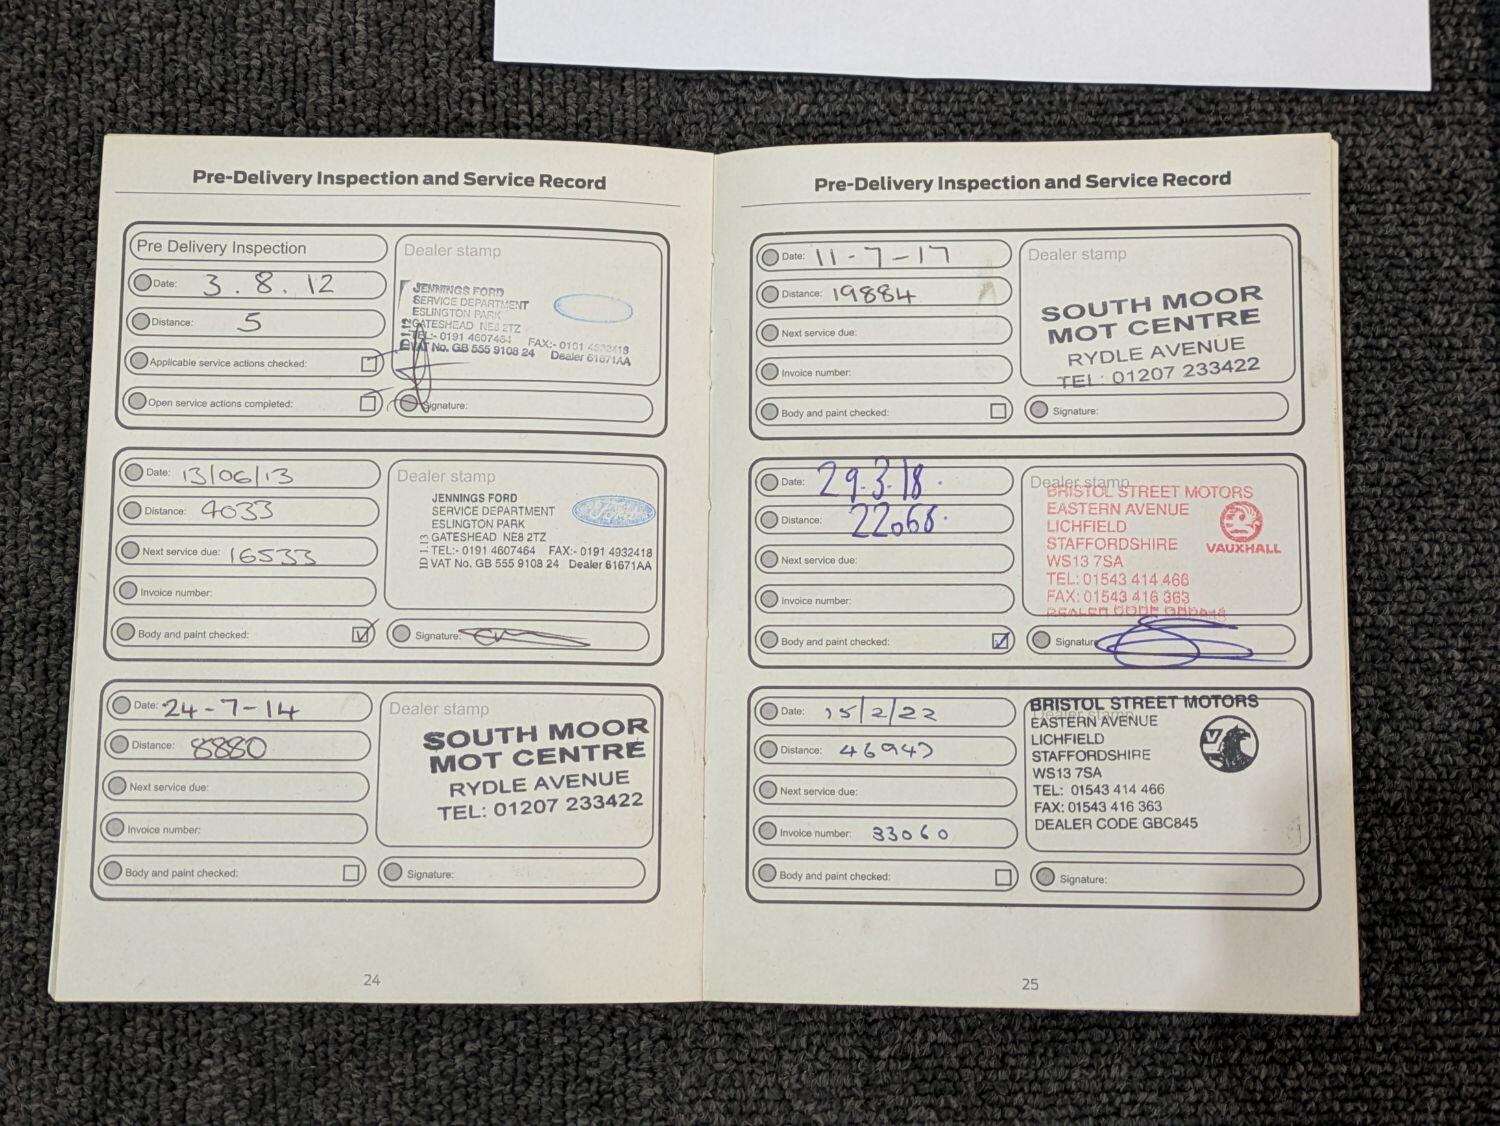 Pre-Delivery Inspection and Service Record
Pre Delivery Inspection
Date: 3.8.12
Distance: 5
Applicable service actions checked:
Open service actions completed:
Dealer stamp
JENNINGS FORD
SERVICE DEPARTMENT
ESLINGTON PARK
GATESHEAD NE8 2TZ
TEL:- 0191 4607464 FAX:- 0191 4932418
VAT No. GB 555 9108 24 Dealer 61671AA
Signature:
Date: 13/06/13
Distance: 4033
Next service due: 16533
Invoice number:
Body and paint checked:
Dealer stamp
JENNINGS FORD
SERVICE DEPARTMENT
ESLINGTON PARK
GATESHEAD NE8 2TZ
TEL:- 0191 4607464 FAX:- 0191 4932418
VAT No. GB 555 9108 24 Dealer 61671AA
Ford
Signature:
Date: 24-7-14
Distance: 8880
Next service due:
Invoice number:
Body and paint checked:
Dealer stamp
SOUTH MOOR
MOT CENTRE
RYDLE AVENUE
TEL: 01207 233422
Signature:
24
Pre-Delivery Inspection and Service Record
Date: 11-7-17
Distance: 19884
Next service due:
Invoice number:
Body and paint checked:
Dealer stamp
SOUTH MOOR
MOT CENTRE
RYDLE AVENUE
TEL: 01207 233422
Signature:
Date: 29.3.18.
Distance: 22068.
Next service due:
Invoice number:
Body and paint checked:
Dealer stamp
BRISTOL STREET MOTORS
EASTERN AVENUE
LICHFIELD
STAFFORDSHIRE
WS13 7SA
TEL: 01543 414 466
FAX: 01543 416 363
DEALER CODE
VAUXHALL
Signature:
Date: 15/2/22
Distance: 46947
Next service due:
Invoice number: 33060
Body and paint checked:
Dealer stamp
BRISTOL STREET MOTORS
EASTERN AVENUE
LICHFIELD
STAFFORDSHIRE
WS13 7SA
TEL: 01543 414 466
FAX: 01543 416 363
DEALER CODE GBC845
Signature:
25